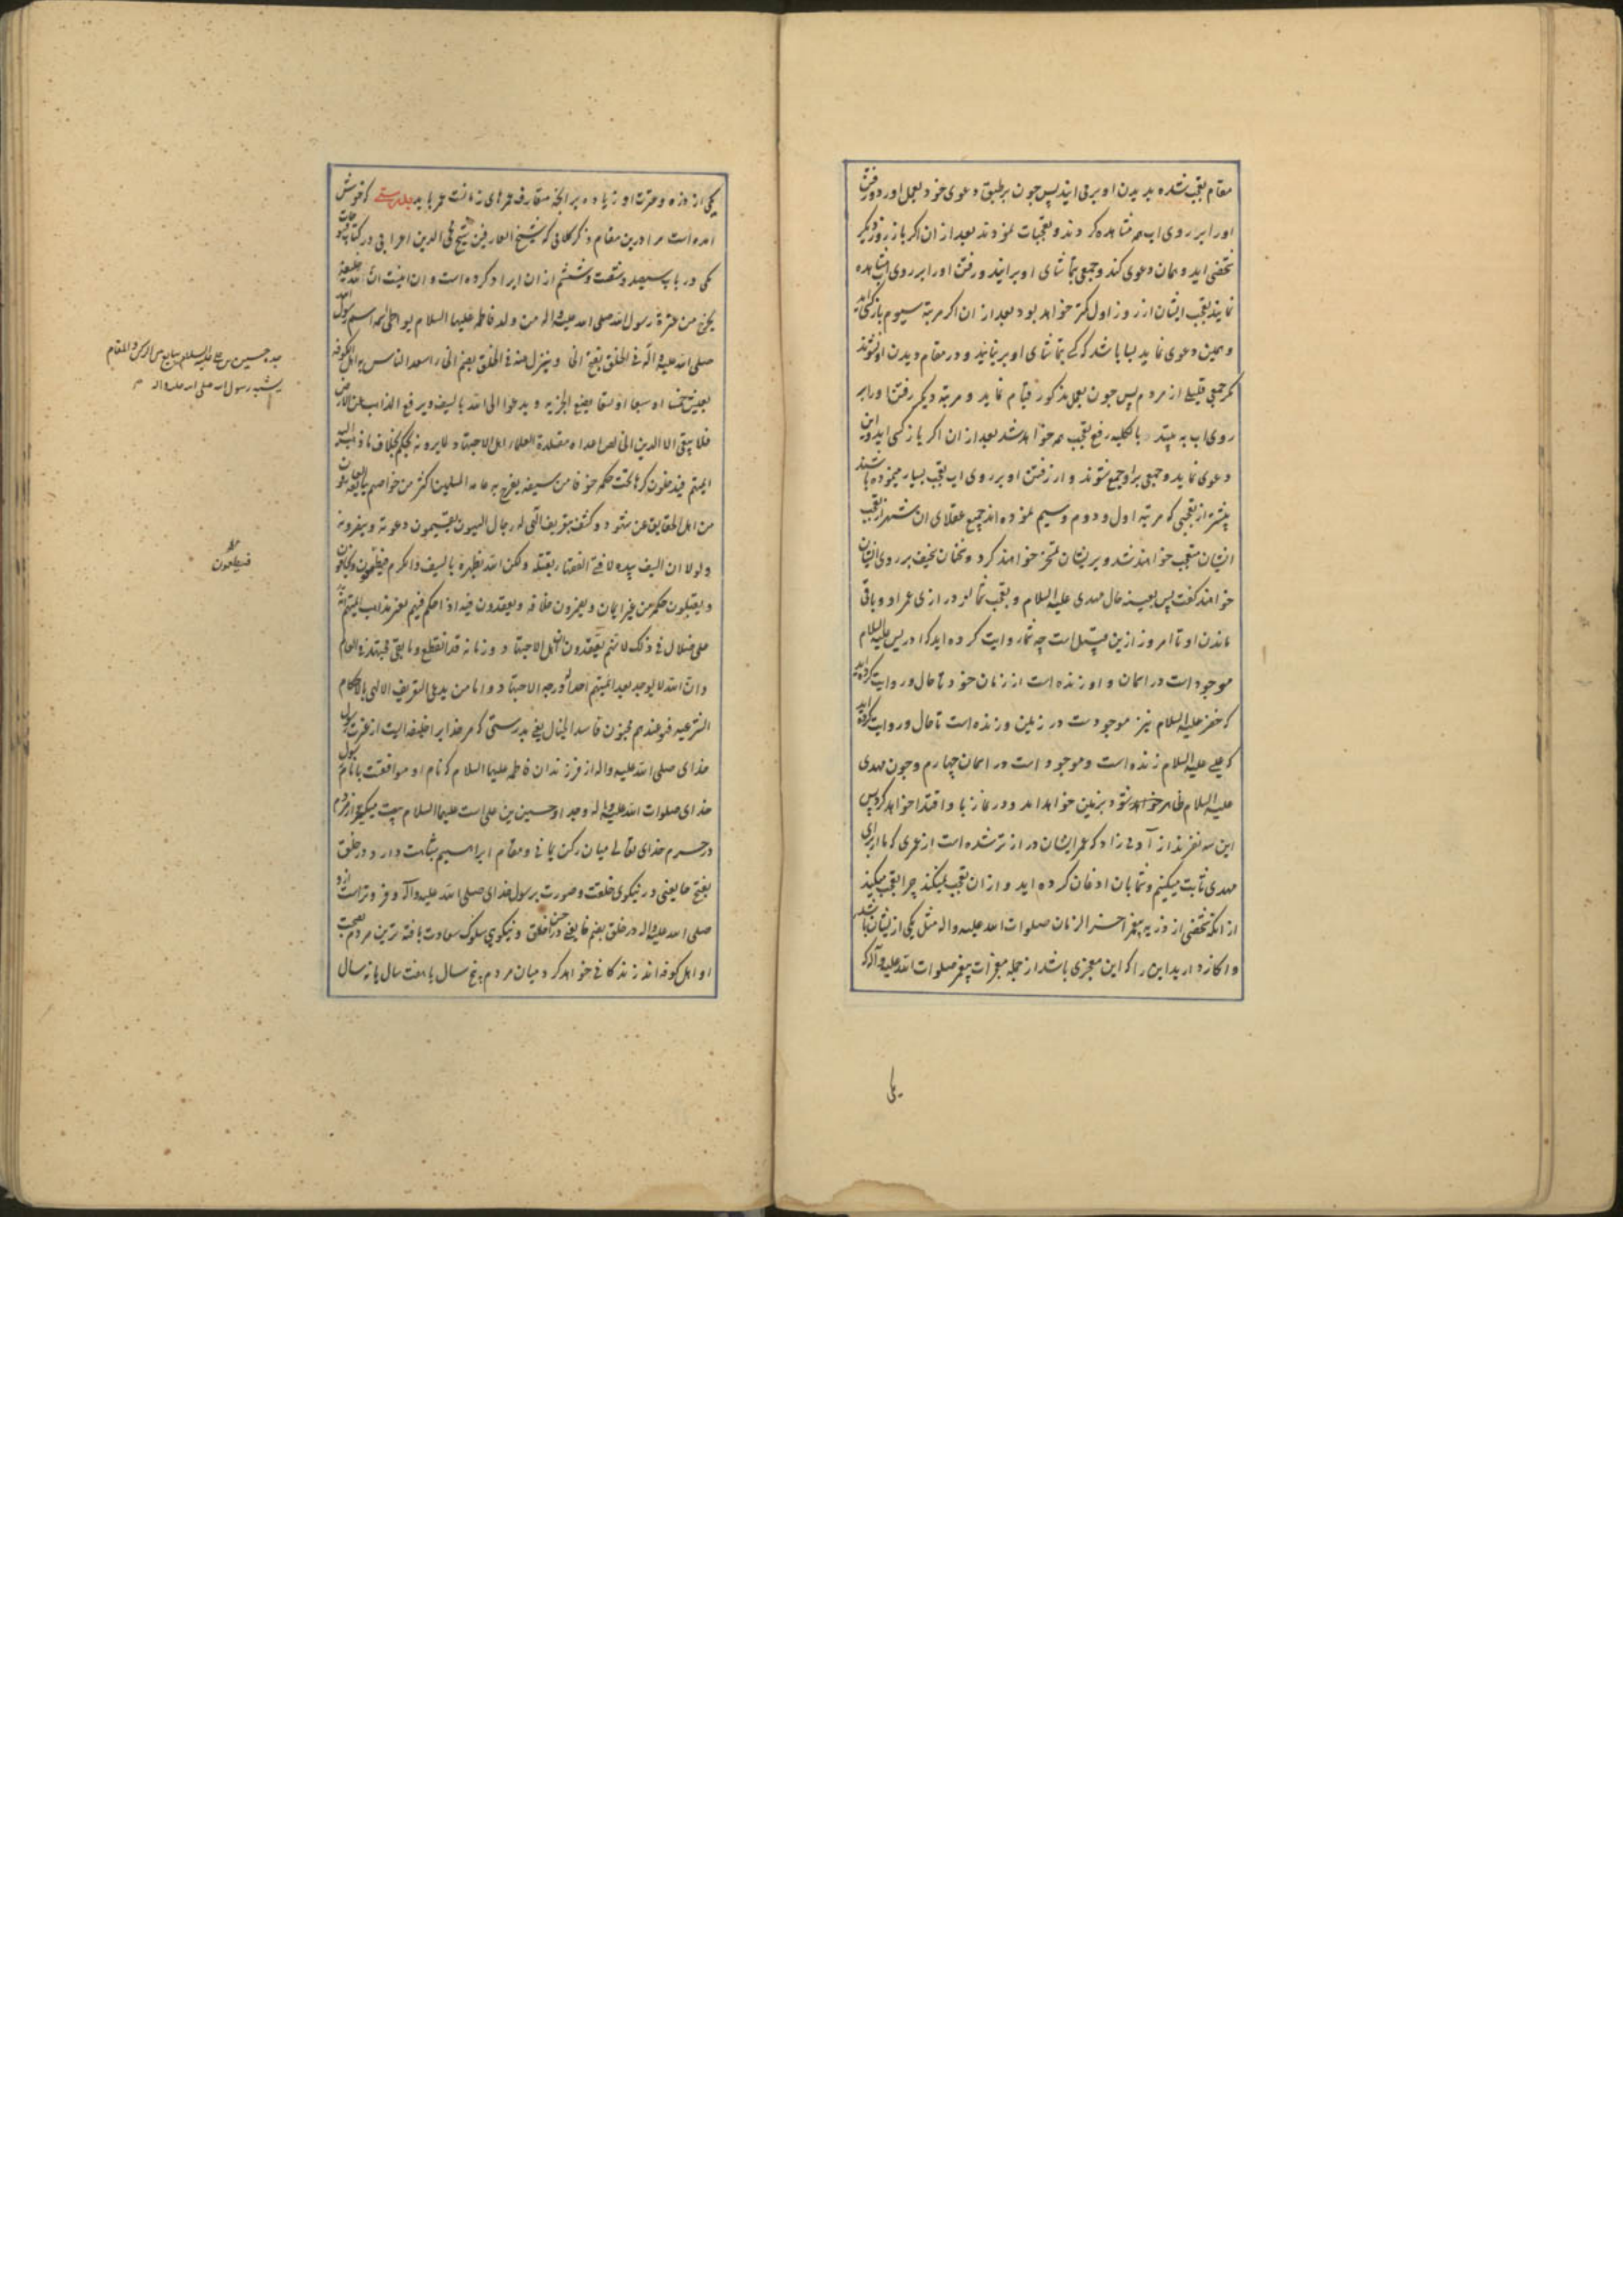 مقام تعجب شده بدیدن او بر می ایند پس چون بر طبق دعوی خود بعمل اورد و رفتن
اورا بر روی اب همه مشاهده کردند و تعجبات نمودند بعد از ان اکر باز روز دیکر
شخصی اید و همان دعوی کند و جمعی بتماشای او برایند و رفتن اورا بر روی اب مشاهده
نمایند تعجب ایشان از روز اول کمتر خواهد بود بعد از ان اکر مرتبه سیوم باز کسی اید
و همین دعوی نماید بسا باشد که کسی بتماشای او بر نیاید و در مقام دیدن او نشوند
مکر جمعی قلیل از مردم پس چون بعمل مذکور قیام نماید و مرتبه دیکر رفتن اورا بر
روی اب به بینند بالکلیه رفع تعجب همه خواهد شد بعد از ان اکر باز کسی اید و این
دعوی نماید و جمعی براو جمع شوند و از رفتن او بر روی اب تعجب بسیار مینموده باشند
بیشتر از تعجبی که مرتبه اول و دوم و سیم نموده اند جمیع عقلای ان شهر از تعجب
ایشان متعجب خواهند شد و بر ایشان تمسخر خواهند کرد و سخنان سخیف بر روی ایشان
خواهند کفت پس بعینه حال مهدی علیه السلام و تعجب شما از درازی عمر او و باقی
ماندن او تا امروز ازین قبیل است چه شما روایت کرده اید که ادریس علیه السلام
موجود است در اسمان و او زنده است از زمان خود تا حال و روایت کرده اید
که خضر علیه السلام نیز موجودست در زمین و زنده است تا حال و روایت کرده اید
که عیسی علیه السلام زنده است و موجود است در اسمان چهارم و چون مهدی
علیه السلام ظاهر خواهد شد بزمین خواهد امد و در نماز باو اقتدا خواهد کرد پس
این سه نفرند از آدمی زاد که عمر ایشان دراز تر شده است از عمری که ما از برای
مهدی ثابت میکنیم و شما بان اذعان کرده اید و از ان تعجب نمیکنید چرا تعجب میکنید
از انکه شخصی از ذریه پیغمبر اخر الزمان صلوات الله علیه و اله مثل یکی از ایشان باشد
و انکار دارید این را که این معجزی باشد از جمله معجزات پیغمبر صلوات الله علیه و آله که
یکی از ذریه و عترت او زیاده بر انچه متعارف عمرهای زمانست عمر یابد بدرستی که خوش
امده است مرا درین مقام ذکر کلامی که شیخ العارفین شیخ محی الدین اعرابی در کتاب فتوحات
مکی در باب سیصد و شصت و ششم از ان ایراد کرده است و ان اینست ان لله خلیفة
یخرج من عترة رسول الله صلی الله علیه و اله من ولد فاطمه علیها السلام یواطی اسمه اسم رسول الله
صلی الله علیه و آله فی الخلق بفتح الخاء و ینزل عنه فی الخلق بضم الخاء اسعد الناس به اهل الکوفه
یعیش خمسا او سبعا او تسعا یضع الجزیه و یدعوا الی الله بالسیف و یرفع المذاهب عن الارض
فلا یبقی الا الدین الخالص اعداءه مقلدة العلماء اهل الاجتهاد لما یرونه یحکم بخلاف ما ذهب الیه
ائمتهم فیدخلون کرها تحت حکمه خوفا من سیفه یفرح به عامه المسلمین اکثر من خواصهم یبایعه العارفون
من اهل الحقایق عن شهود و کشف بتعریف الهی له رجال الهیون یقیمون دعوته و ینصرونه
ولولا ان السیف بیده لافتی الفقهاء بقتله ولکن الله یظهره بالسیف والکرم فیطمعون و یخافون
و یقبلون حکمه من غیر ایمان و یضمرون خلافه و یعتقدون فیه اذا حکم فیهم بغیر مذاهب ائمتهم انه
علی ضلال فی ذلک لانهم یعتقدون ان اهل الاجتهاد و زمانه قد انقطع و ما بقی مجتهد فی العالم
وان الله لا یوجد بعد ائمتهم احدا له درجه الاجتهاد و اما من یدعی التعریف الالهی بالاحکام
الشرعیه فهو عندهم مجنون فاسد الخیال یعنی بدرستی که مر خدایرا خلیفه ایست از عترت رسول
خدای صلی الله علیه و اله از فرزندان فاطمه علیها السلام که نام او موافقست با نام رسول
خدای صلوات الله علیه و اله و جد او حسین بن علی است علیهما السلام بیعت میکیرد از مردم
در حرم خدای تعالی میان رکن یمانی و مقام ابراهیم شباهت دارد در خلق
بفتح خا یعنی در نیکوی خلقت و صورت برسول خدای صلی الله علیه و آله و فروتر است از او
صلی الله علیه و اله در خلق بضم خا یعنی در حسن خلق و نیکویی سلوک سعادت یافته ترین مردم بصحبت
او اهل کوفه اند زندکانی خواهد کرد میان مردم پنج سال یا هفت سال یا نه سال
جده حسین بن علی علیه السلام یبایع بین الرکن و المقام
یشبه رسول الله صلی الله علیه و اله
فیطمعون